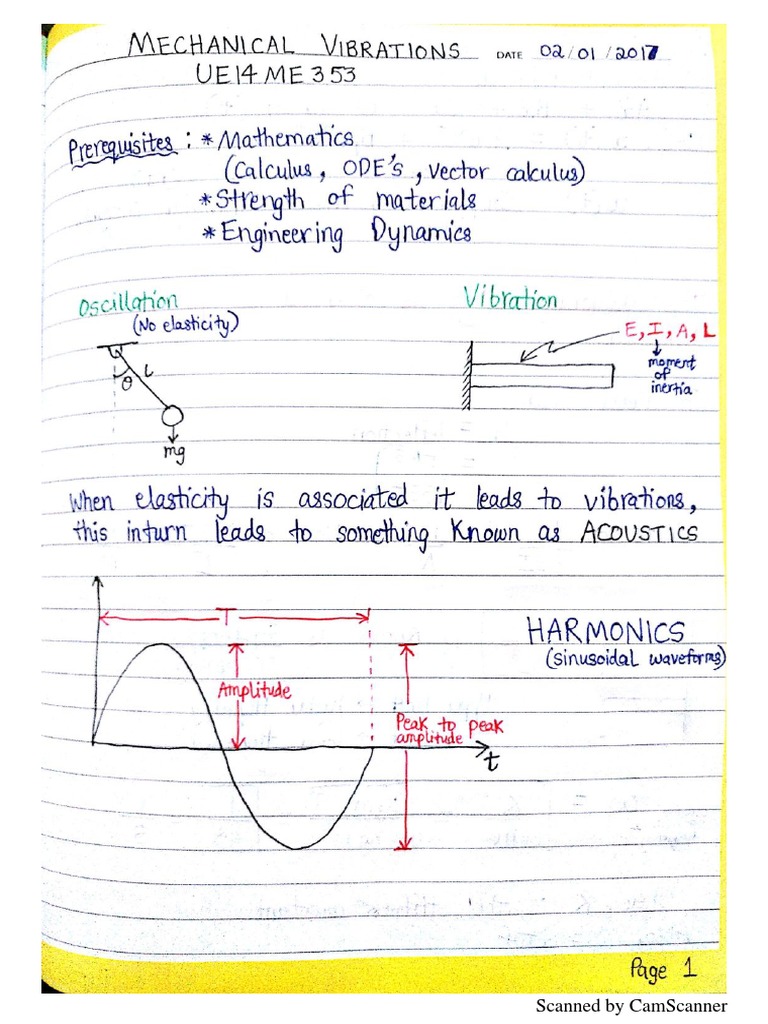 MECHANICAL VIBRATIONS DATE 02/01/2017
UE14ME353
Prerequisites : * Mathematics
(Calculus, ODE's, vector calculus)
* Strength of materials
* Engineering Dynamics
Oscillation
(No elasticity)
L
θ
mg
Vibration
E, I, A, L
moment
of
inertia
When elasticity is associated it leads to vibrations,
this inturn leads to something known as ACOUSTICS
T
HARMONICS
(sinusoidal waveforms)
Amplitude
Peak to peak
amplitude
t
Page 1
Scanned by CamScanner